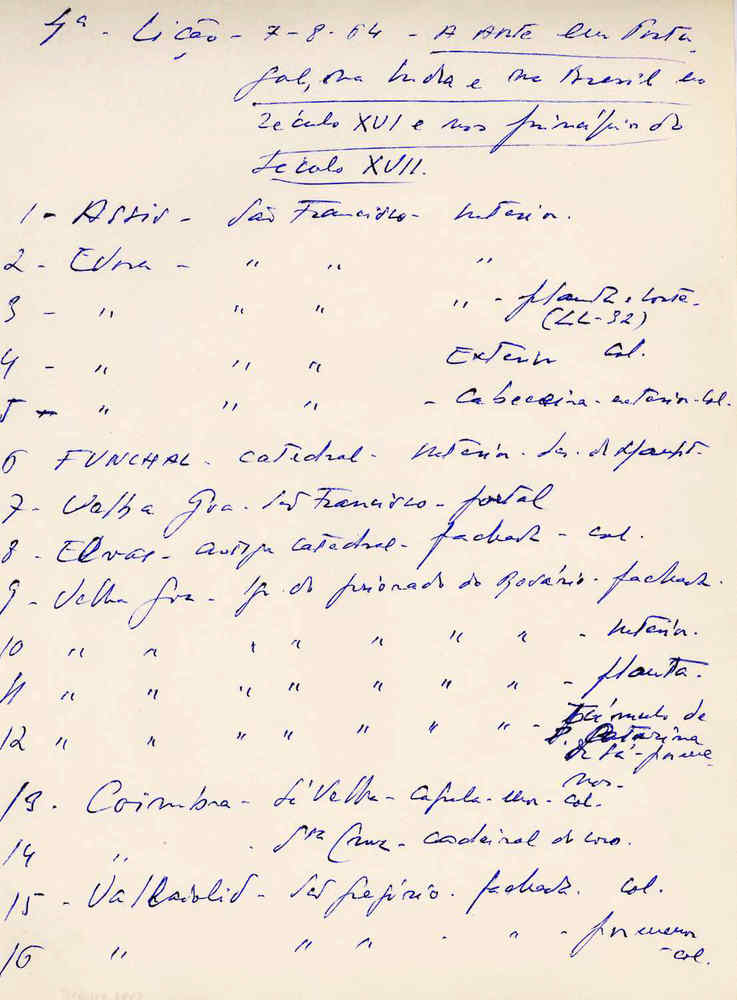 4ª - Lição - 7-8-64 - A Arte em Portu-
gal, na India e no Brasil no
século XVI e nos princípios do
século XVII.
1 - Assis - São Francisco - Interior.
2 - Évora - " " "
3 - " " " " - planta e corte.
(LL-32)
4 - " " " Exterior col.
5 - " " " - Cabeceira - exterior - col.
6 FUNCHAL - catedral - Interior - des. de
7 - Velha Goa - São Francisco - portal
8 - Elvas - antiga catedral - fachada - col.
9 - Velha Goa - Ig. do priorado do Rosário - fachada.
10 " " " " " " " - Interior.
11 " " " " " " " - planta.
12 " " " " " " " - Túmulo de
D. Catarina
de Sá - porme-
nor -
13 - Coimbra - Sé Velha - capela-mor - col.
14 " - Sta Cruz - cadeiral do coro.
15 - Valladolid - São Gregório - fachada. col.
16 " " " - " - pormenor
- col.